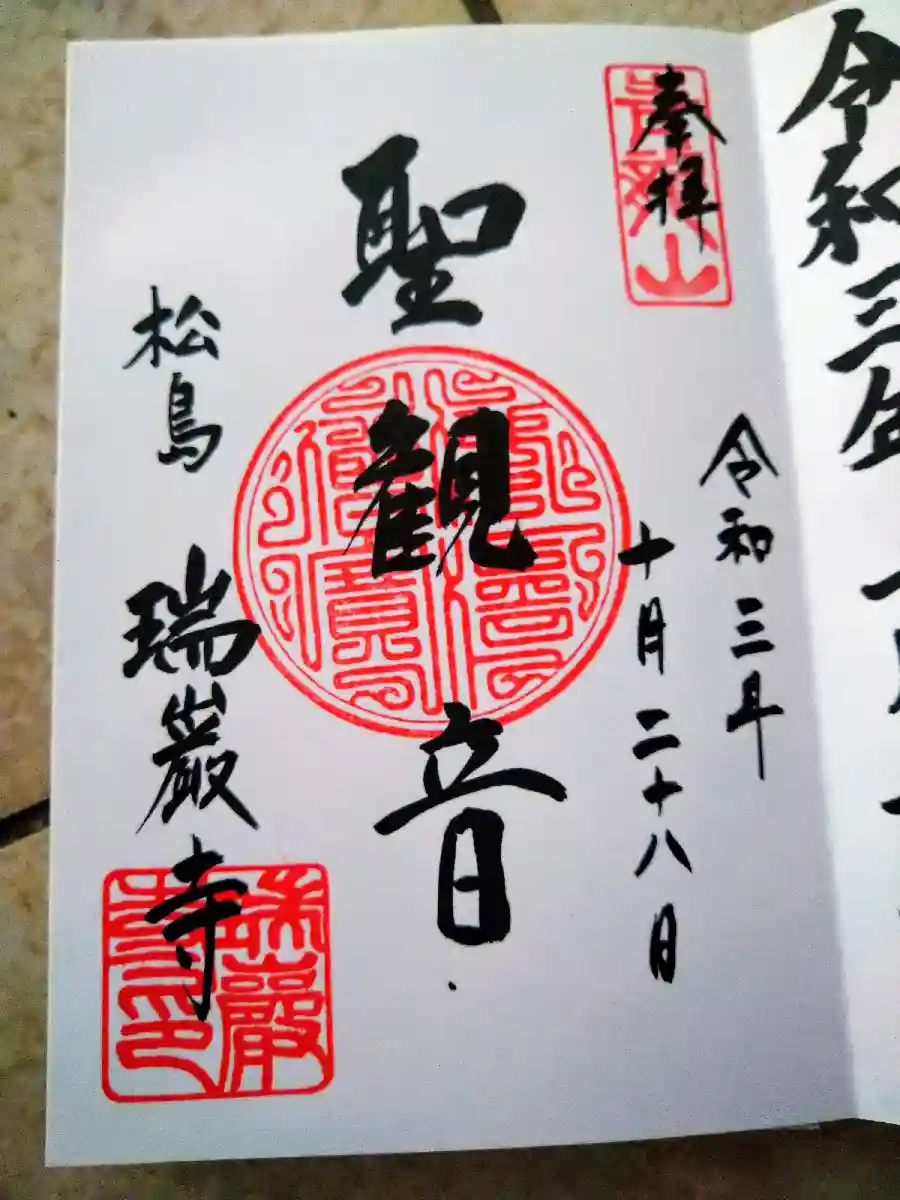 令和三年
奉拝
令和三年
十月二十八日
聖観音
松島 瑞巌寺
瑞巌寺印